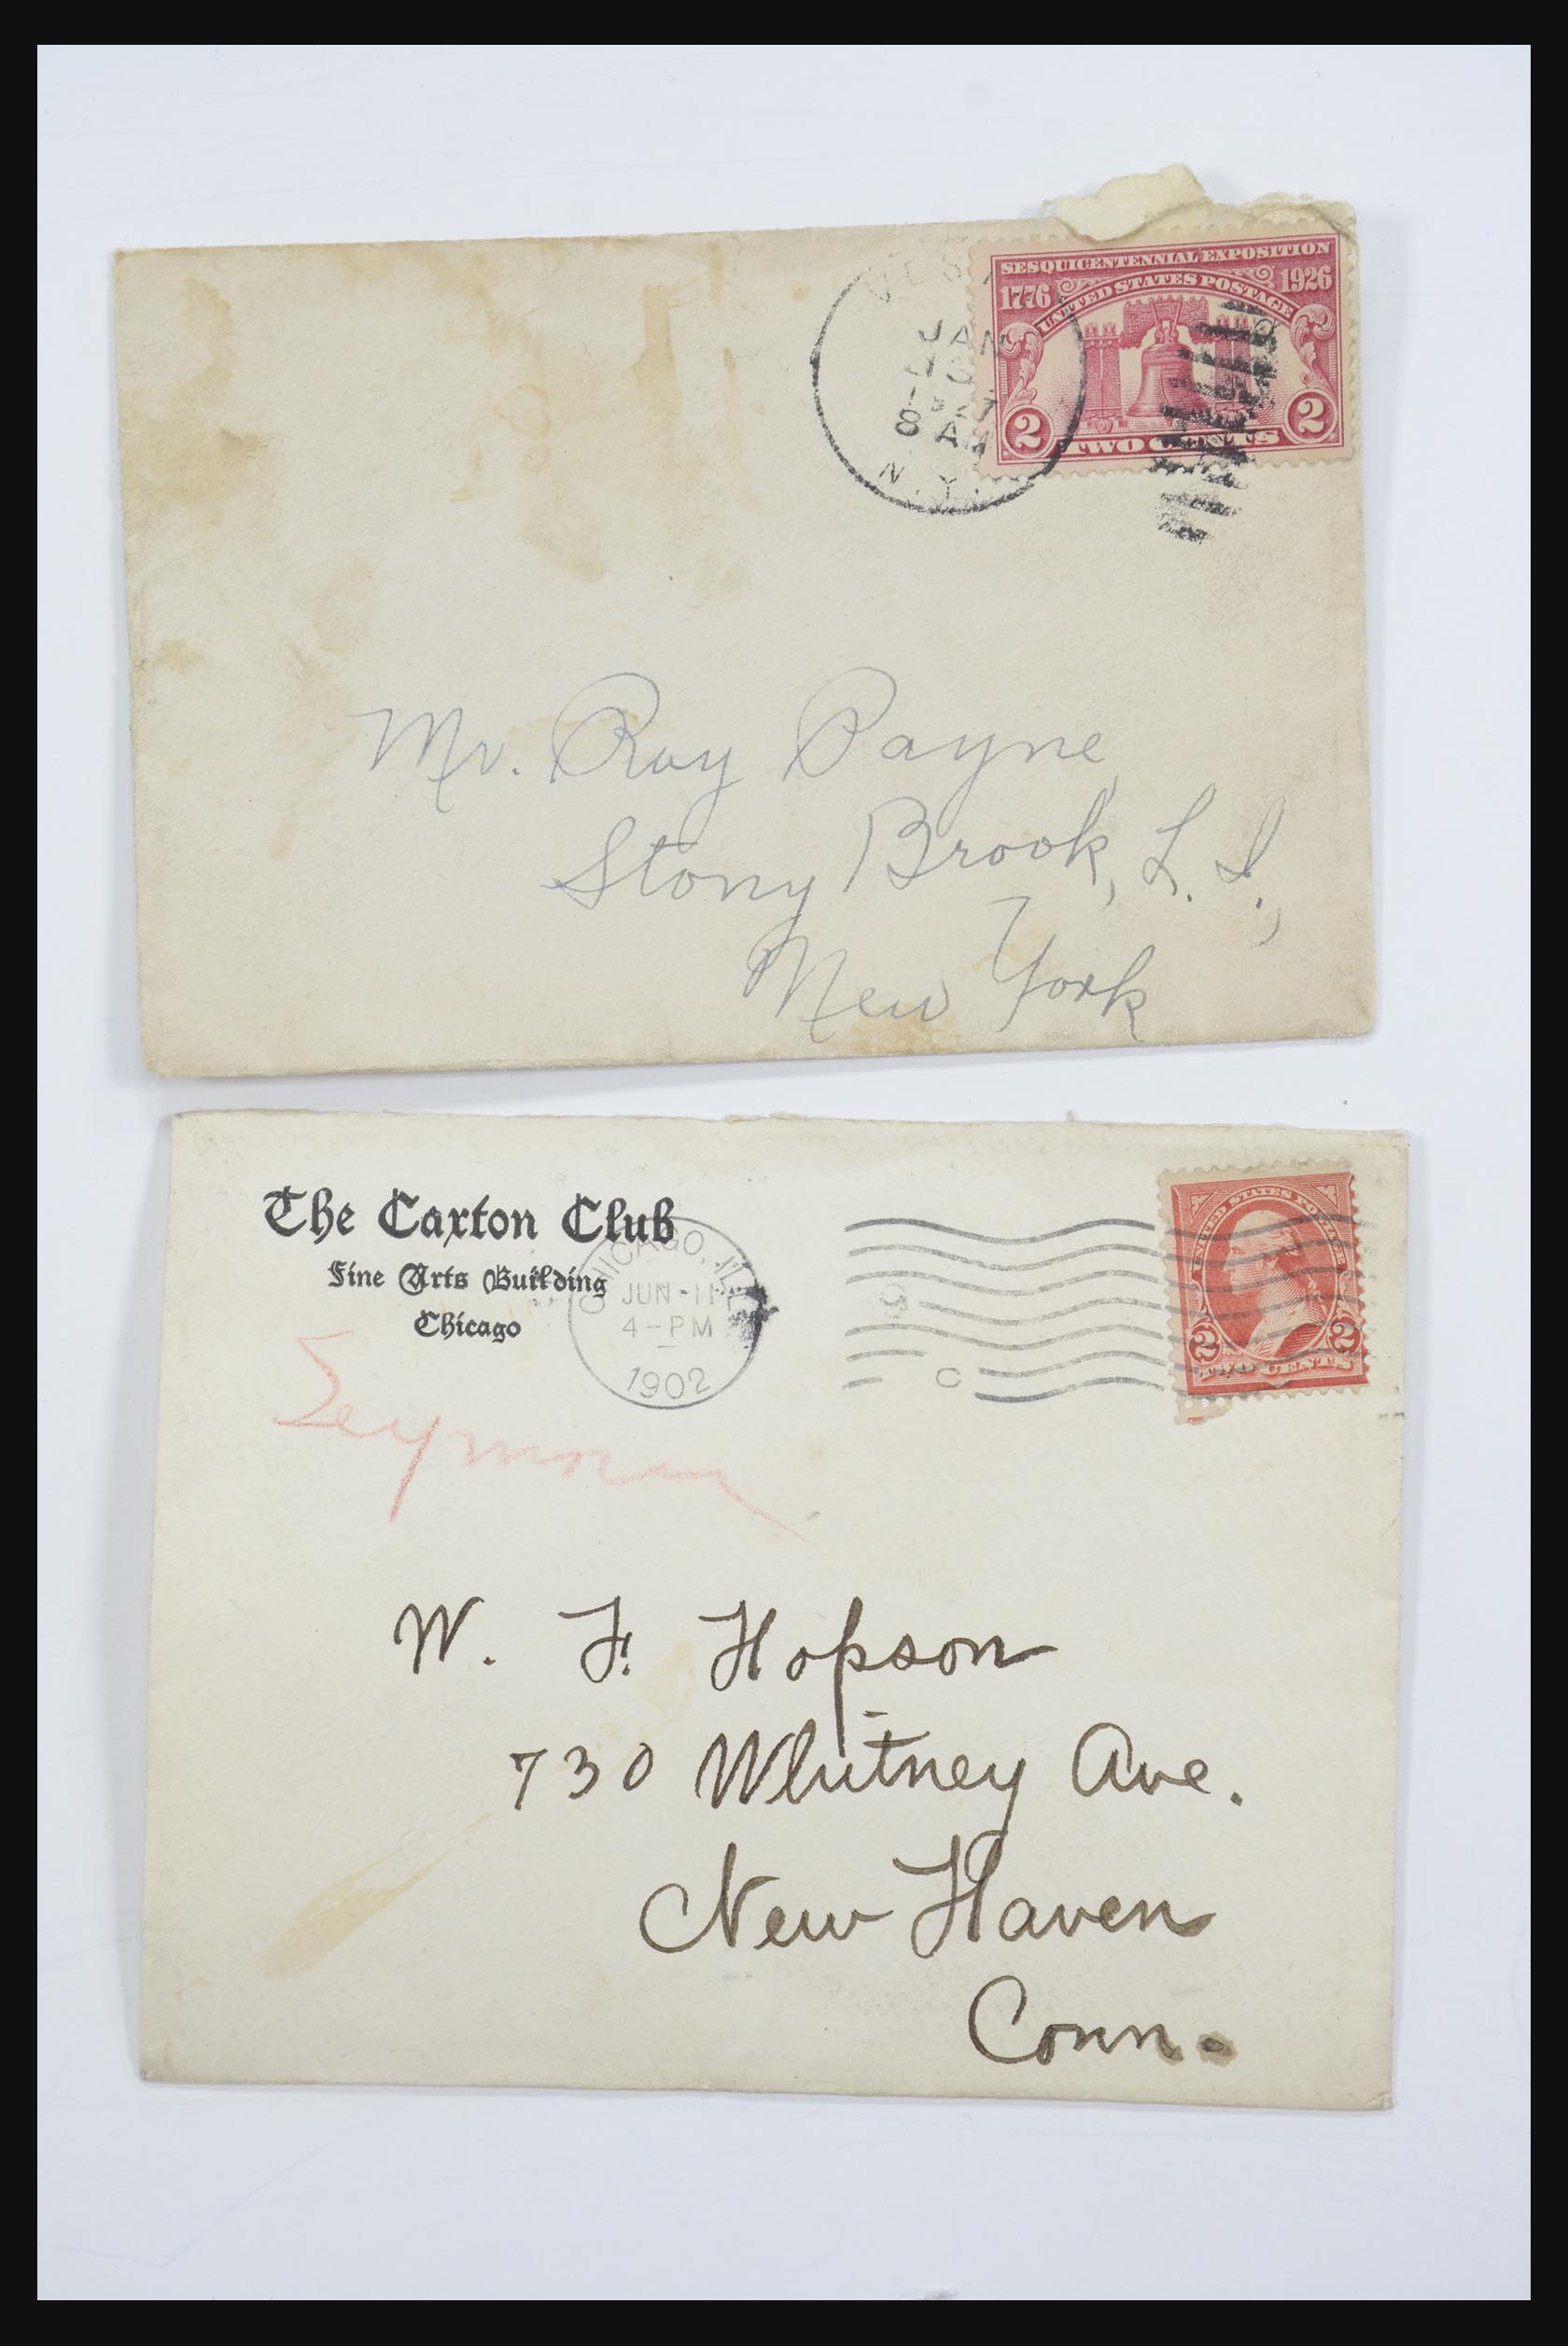 SESQUICENTENNIAL EXPOSITION
1776 1926
UNITED STATES POSTAGE
2 2
TWO CENTS
JAN
1927
8 AM
N.Y.
Mr. Ray Payne,
Stony Brook, L. I.,
New York
The Caxton Club
Fine Arts Building
Chicago
CHICAGO, ILL.
JUN-11
4-PM
1902
C
UNITED STATES POSTAGE
2 2
TWO CENTS
Seymour
W. F. Hopson
730 Whitney Ave.
New Haven
Conn.